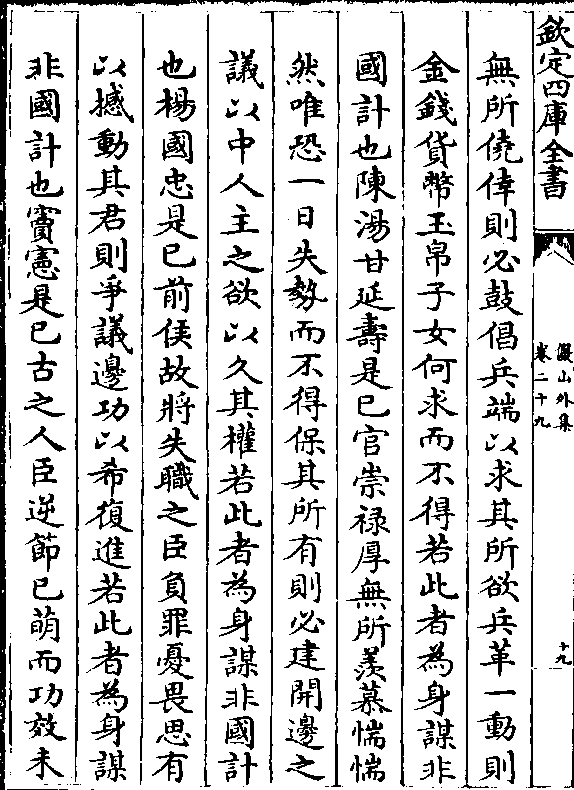 欽定四庫全書
儼山外集
卷二十九
十九
無所僥倖則必鼓倡兵端以求其所欲兵革一動則
金錢貨幣玉帛子女何求而不得若此者為身謀非
國計也陳湯甘延壽是已官崇禄厚無所羨慕惴惴
然唯恐一日失勢而不得保其所有則必建開邊之
議以中人主之欲以久其權若此者為身謀非國計
也楊國忠是已前侯故將失職之臣負罪憂畏思有
以撼動其君則爭議邊功以希復進若此者為身謀
非國計也竇憲是已古之人臣逆節已萌而功效未